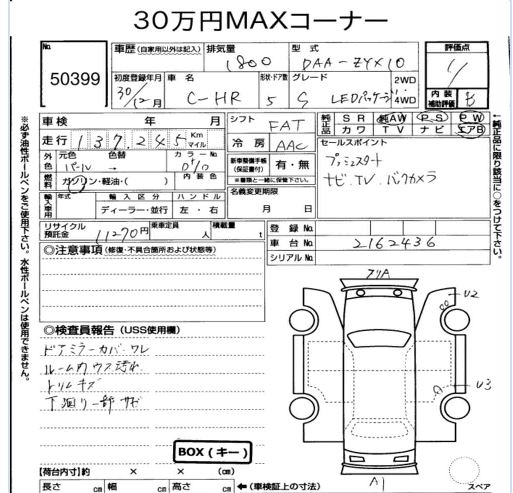 30万円MAXコーナー
No.
50399
車歴 (自家用以外は記入)
排気量
1800
型式
DAA-ZYX10
評価点
初度登録年月
30年/12月
車名
C-HR
形状・ドア数
5
グレード
S LEDパッケージ
2WD
4WD
内装
補助評価
車検 年 月
走行 137,245 Km マイル
シフト
FAT
冷房
AAC
純正品
SR 純AW PS PW
カワ TV ナビ エアB
外色
元色 色替
パール→
カラーNo.
070
燃料
ガソリン・軽油・( )
内装色
新車整備手帳
(保証書付)
有・無
※書類と一緒に保管下さい。
セールスポイント
プッシュスタート
ナビ.TV.バックカメラ
輸入車用
年式
輸入区分
ディーラー・並行
ハンドル
左・右
名義変更期限
月 日
リサイクル
預託金
11270円
乗車定員
人
積載量
t
登録No.
車台No.
2162436
シリアルNo.
◎注意事項 (修復・不具合箇所および状態等)
◎検査員報告 (USS使用欄)
ドアミラーカバーワレ
ルーム内ウス汚れ
トリムキズ
下廻り一部サビ
BOX(キー)
フリA
U2
U3
A1
スペア
【荷台内寸】約 × × (㎝)
長さ ㎝ 幅 ㎝ 高さ ㎝ ←(車検証上の寸法)
※必ず油性ボールペンをご使用下さい。水性ボールペンは使用できません。
←純正品に限り該当に○をつけて下さい。